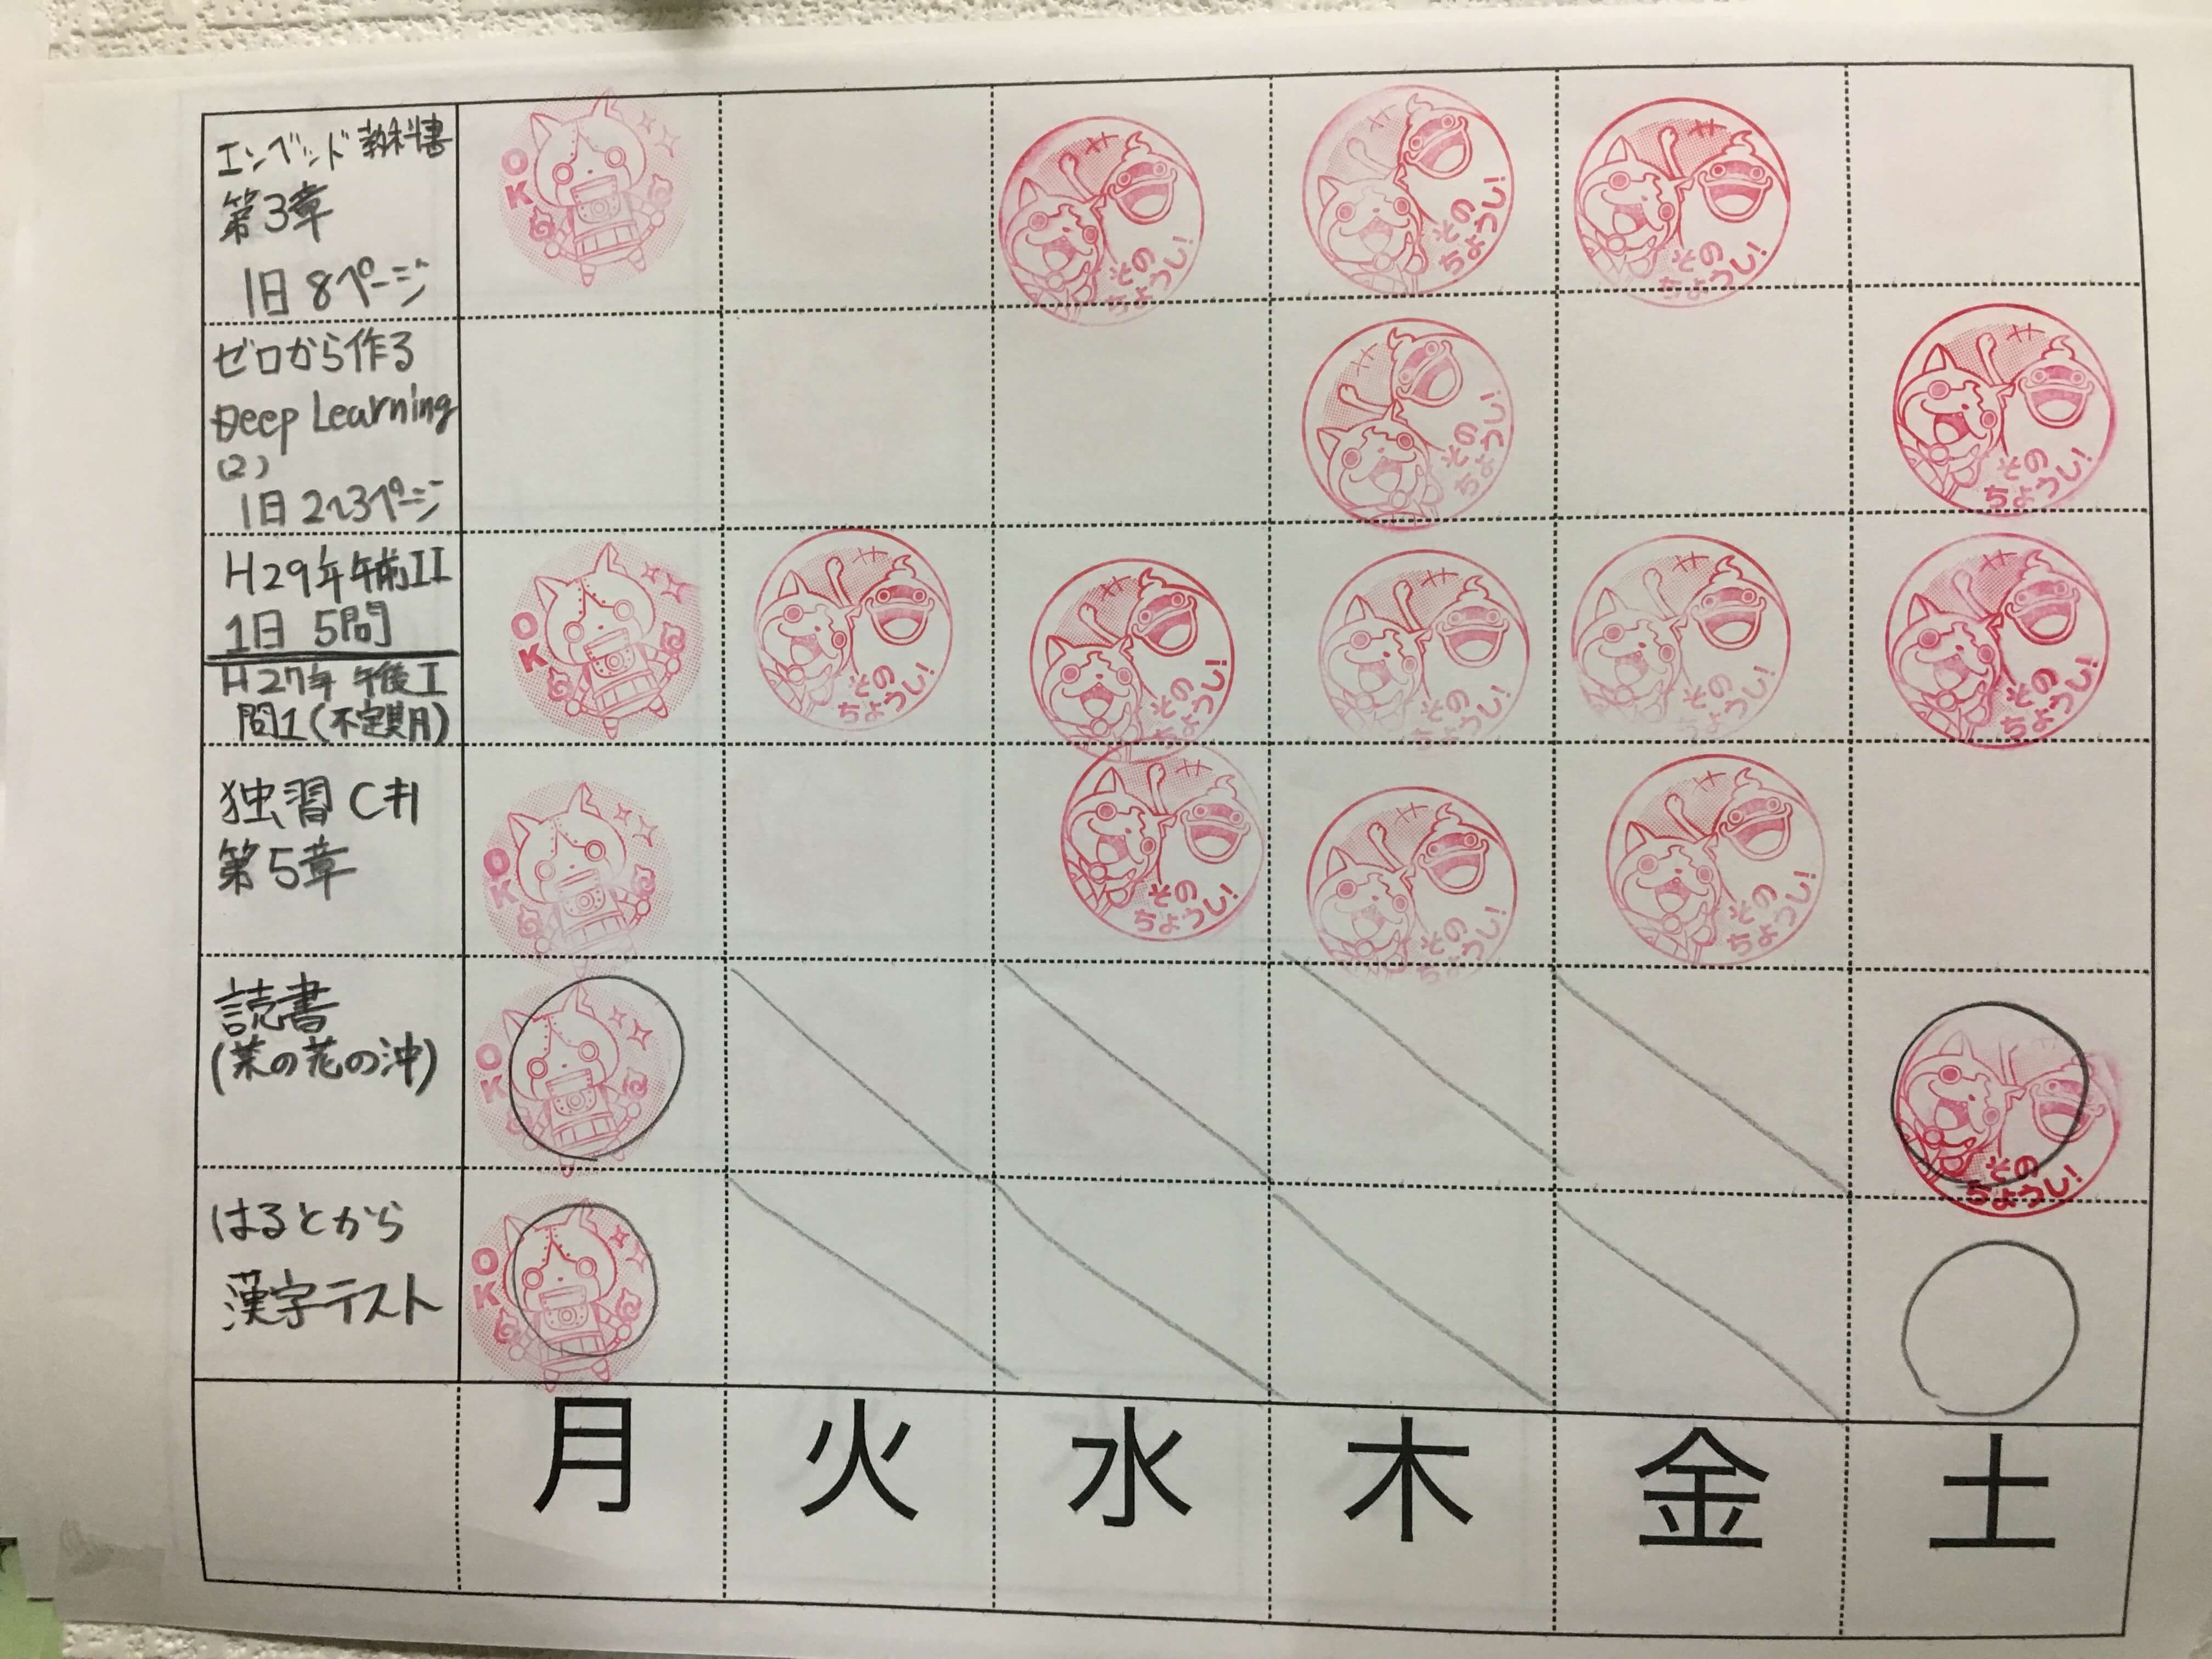 エンベッド教科書
第3章
1日 8ページ
OK
そのちょうし!
そのちょうし!
そのちょうし!
ゼロから作る
Deep Learning
(2)
1日 2〜3ページ
そのちょうし!
そのちょうし!
H29年午前II
1日 5問
H27年 午後I
問1(不定期)
OK
そのちょうし!
そのちょうし!
そのちょうし!
そのちょうし!
そのちょうし!
独習 C#
第5章
OK
そのちょうし!
そのちょうし!
そのちょうし!
読書
(菜の花の沖)
OK
そのちょうし!
はるとから
漢字テスト
OK
月 火 水 木 金 土